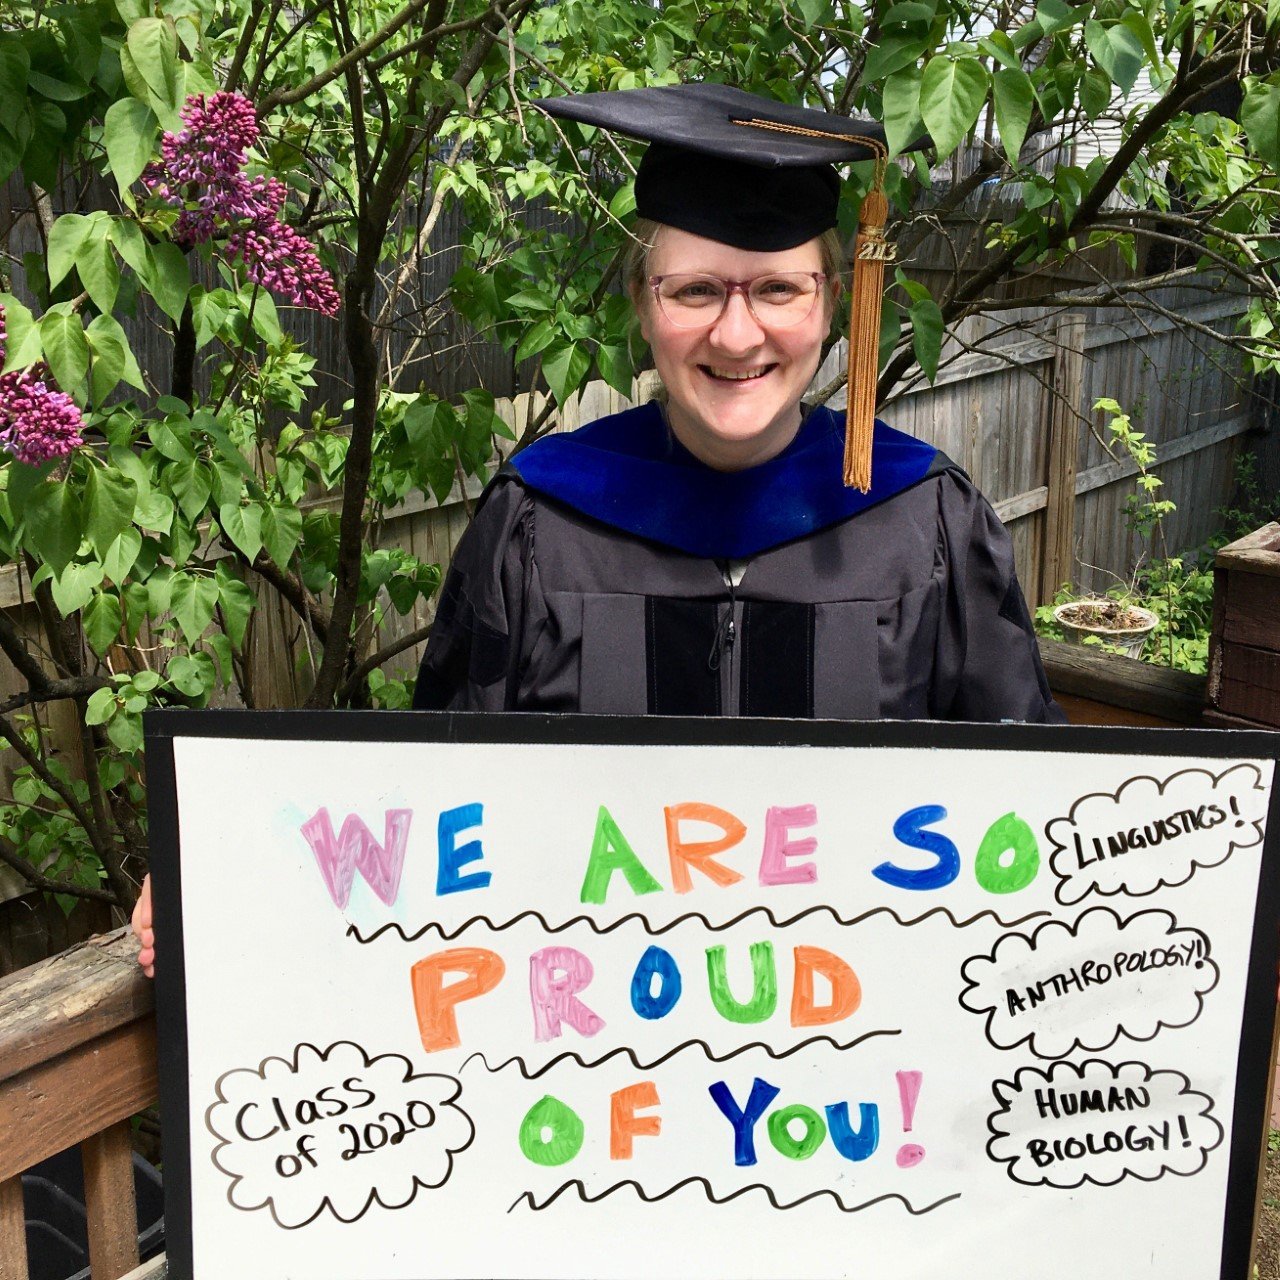 2013
WE ARE SO
PROUD
OF YOU!
Class
of 2020
LINGUISTICS!
ANTHROPOLOGY!
HUMAN
BIOLOGY!